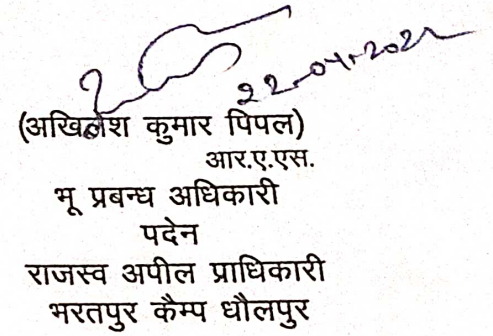 22-04-202
(अखिलेश कुमार पिपल)
आर.ए.एस.
भू प्रबन्ध अधिकारी
पदेन
राजस्व अपील प्राधिकारी
भरतपुर कैम्प धौलपुर